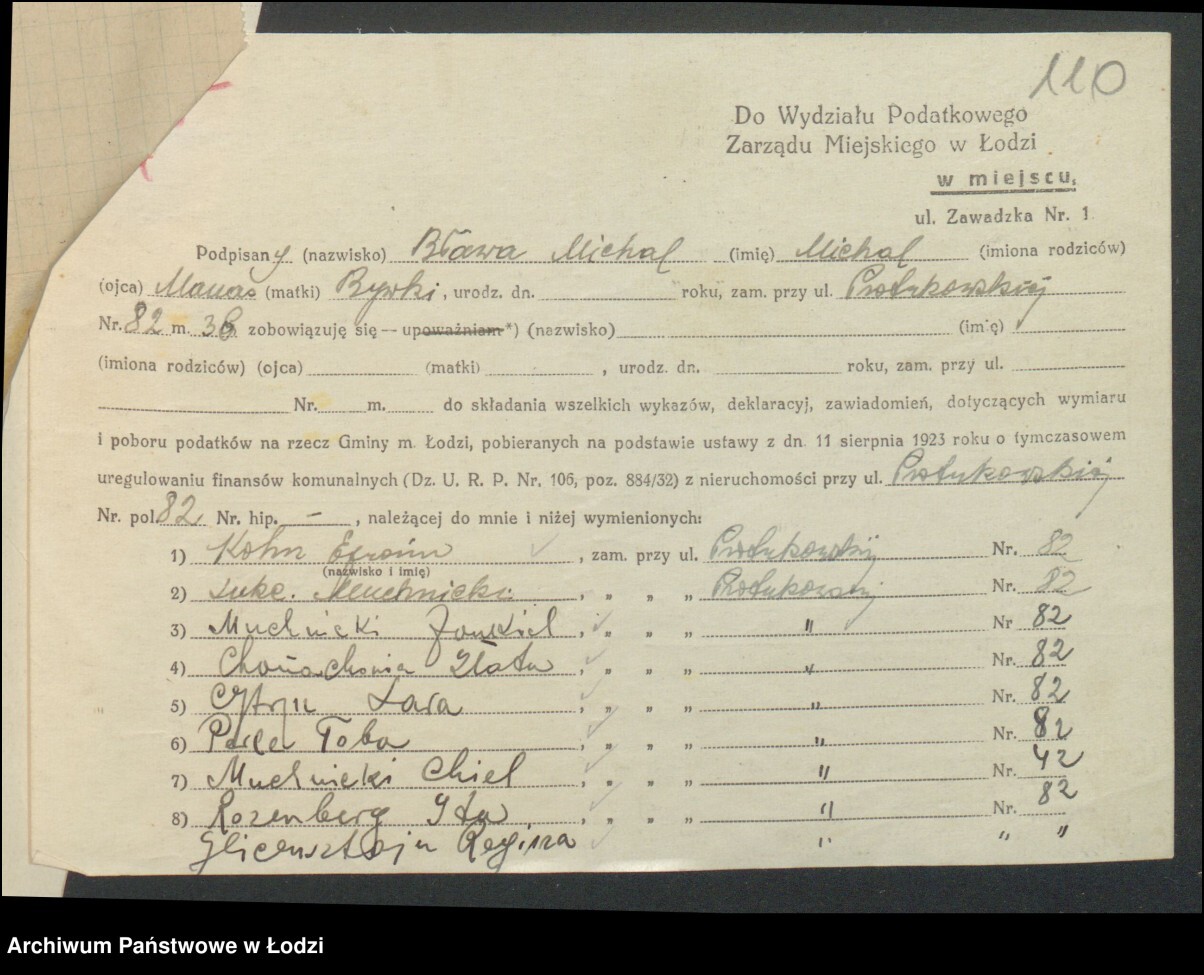 110
Do Wydziału Podatkowego
Zarządu Miejskiego w Łodzi
w miejscu,
ul. Zawadzka Nr. 1
Podpisany (nazwisko) Bława Michal (imię) Michal (imiona rodziców)
(ojca) Manas (matki) Rywki, urodz. dn. roku, zam. przy ul. Piotrkowskiej
Nr. 82 m. 36 zobowiązuję się — upoważniam*) (nazwisko) (imię)
(imiona rodziców) (ojca) (matki) , urodz. dn. roku, zam. przy ul.
Nr. m. do składania wszelkich wykazów, deklaracyj, zawiadomień, dotyczących wymiaru
i poboru podatków na rzecz Gminy m. Łodzi, pobieranych na podstawie ustawy z dn. 11 sierpnia 1923 roku o tymczasowem
uregulowaniu finansów komunalnych (Dz. U. R. P. Nr. 106, poz. 884/32) z nieruchomości przy ul. Piotrkowskiej
Nr. pol. 82 Nr. hip. — , należącej do mnie i niżej wymienionych:
1) Kohn Efroim , zam. przy ul. Piotrkowskiej Nr. 82
(nazwisko i imię)
2) Sukc. Muchnicki , „ „ „ Piotrkowskiej Nr. 82
3) Muchnicki Jankiel , „ „ „ " Nr 82
4) Złata , „ „ „ " Nr. 82
5) Cytryn Sara , „ „ „ " Nr. 82
6) Toba , „ „ „ " Nr. 82
7) Muchnicki Chiel , „ „ „ " Nr. 42
8) Rozenberg Ita , „ „ „ " Nr. 82
Glicensztejn Regina " " "
Archiwum Państwowe w Łodzi